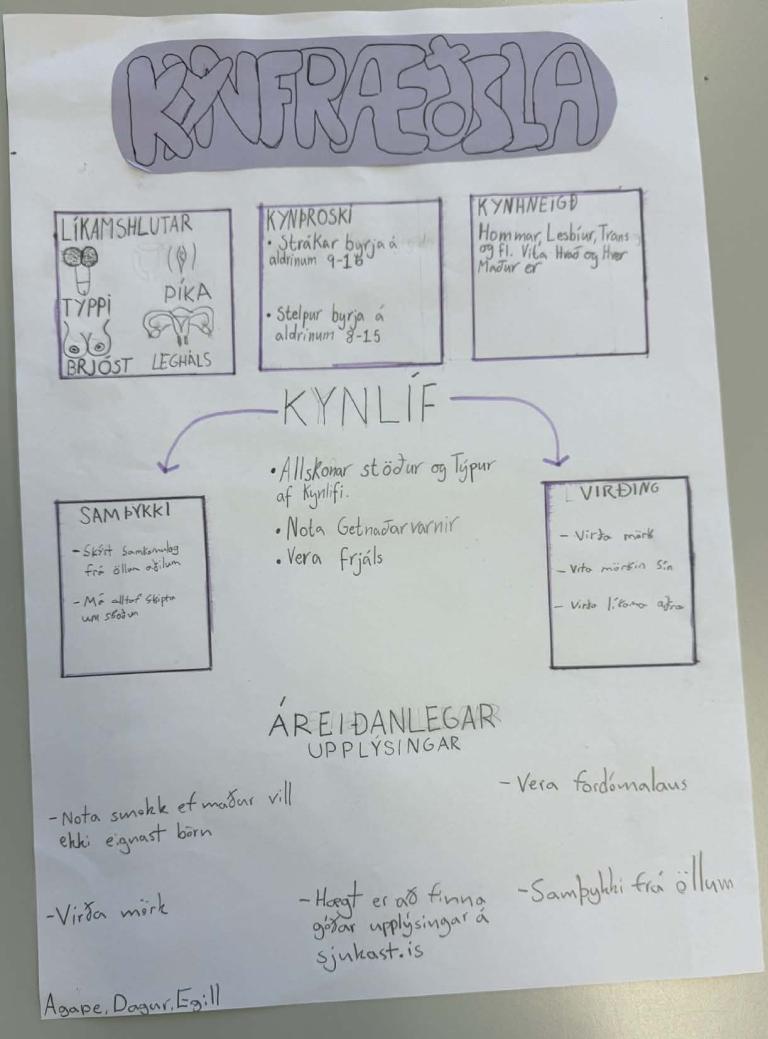 KYNFRÆÐSLA
LÍKAMSHLUTAR
TYPPI
PÍKA
BRJÓST
LEGHÁLS
KYNÞROSKI
• Strákar byrja á
aldrinum 9-16
• Stelpur byrja á
aldrinum 8-15
KYNHNEIGÐ
Hommar, Lesbíur, Trans
og fl. Vita Hvað og Hver
Maður er
KYNLÍF
• Allskonar stöður og Týpur
af Kynlífi.
• Nota Getnaðarvarnir
• Vera frjáls
SAMÞYKKI
- Skýrt Samkomulag
frá öllum aðilum
- Má alltaf skipta
um skoðun
VIRÐING
- Virða mörk
- Vita mörkin sín
- Virða líkama aðra
ÁREIÐANLEGAR
UPPLÝSINGAR
- Nota smokk ef maður vill
ekki eignast börn
- Vera fordómalaus
- Virða mörk
- Hægt er að finna
góðar upplýsingar á
sjukast.is
- Samþykki frá öllum
Agape, Dagur, Egill